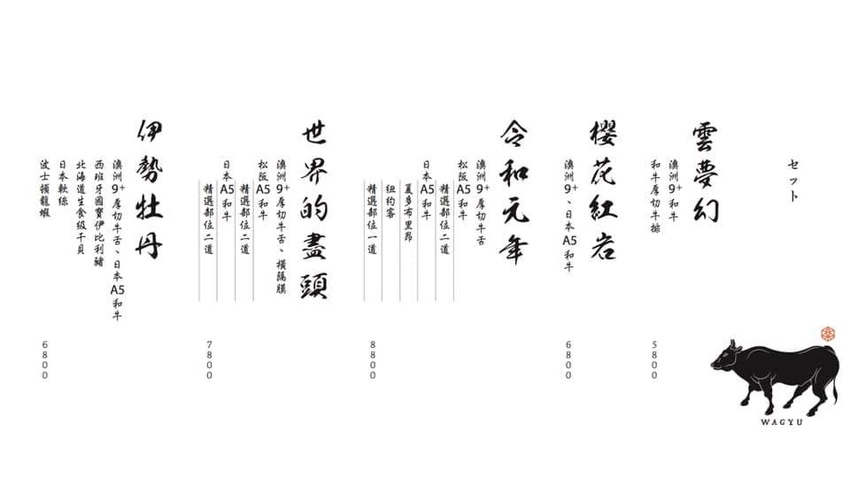 セット
雲夢幻
澳洲9+和牛
和牛厚切牛排
5800
櫻花紅岩
澳洲9+、日本A5和牛
6800
令和元年
澳洲9+厚切牛舌
松阪A5和牛
精選部位二道
日本A5和牛
夏多布里昂
紐約客
精選部位一道
8800
世界的盡頭
澳洲9+厚切牛舌、橫隔膜
松阪A5和牛
精選部位二道
日本A5和牛
精選部位二道
7800
伊勢牡丹
澳洲9+厚切牛舌、日本A5和牛
西班牙國寶伊比利豬
北海道生食級干貝
日本軟絲
波士頓龍蝦
6800
WAGYU